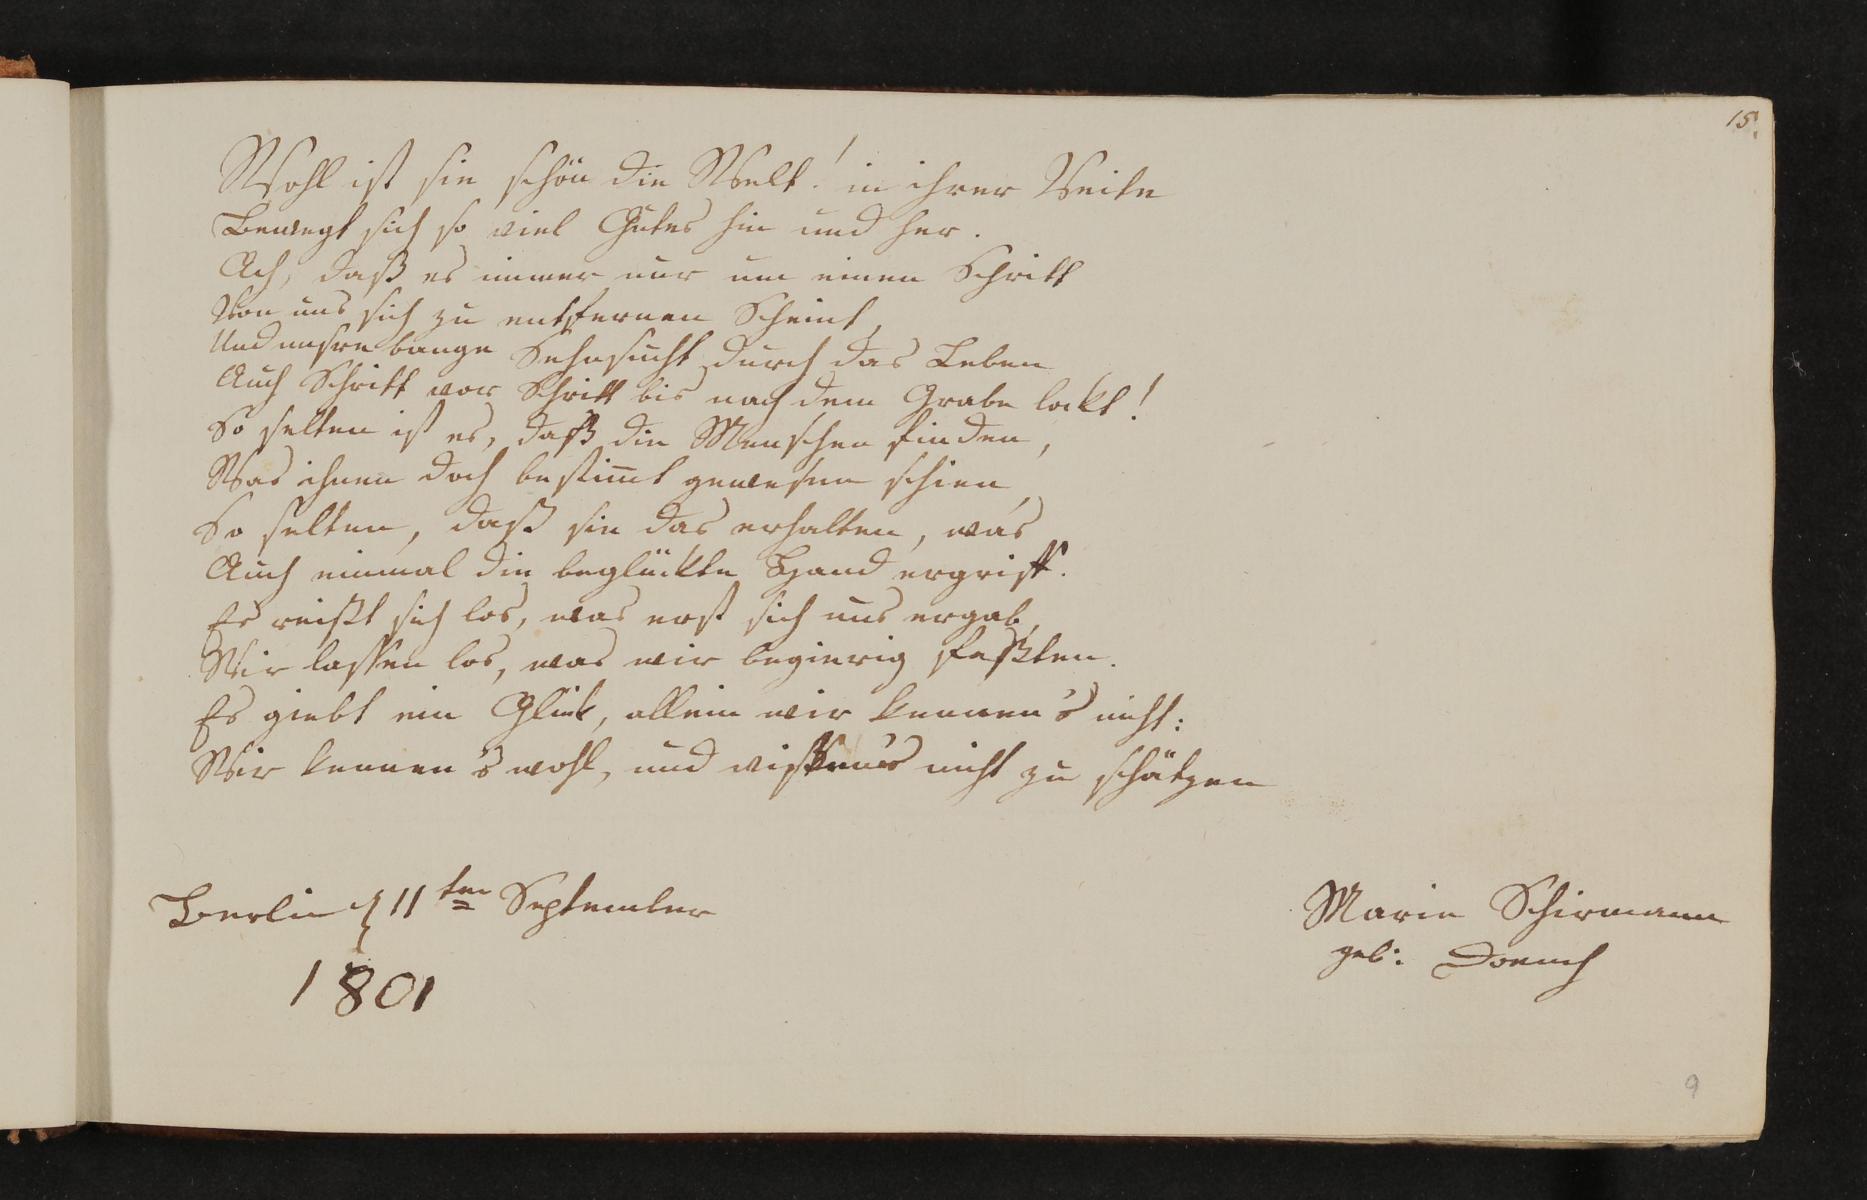 15.
Wohl ist sie schön die Welt! in ihrer Weite
Bewegt sich so viel Gutes hin und her.
Ach, daß es immer nur um einen Schritt
Von uns sich zu entfernen Scheint,
Und unsre bange Sehnsucht durch das Leben
Auch Schritt vor Schritt bis nach dem Grabe lockt!
So selten ist es, daß die Menschen finden,
Was ihnen doch bestim̄t gewesen schien,
So selten, daß sie das erhalten, was
Auch einmal die beglückte Hand ergriff.
Es reißt sich los, was erst sich uns ergab,
Wir lassen los, was wir begierig faßten.
Es giebt ein Glück, allein wir kennen's nicht:
Wir kennen's wohl, und wissen's nicht zu schätzen
Berlin d 11ten September
1801
Marie Schirmann
geb:
9